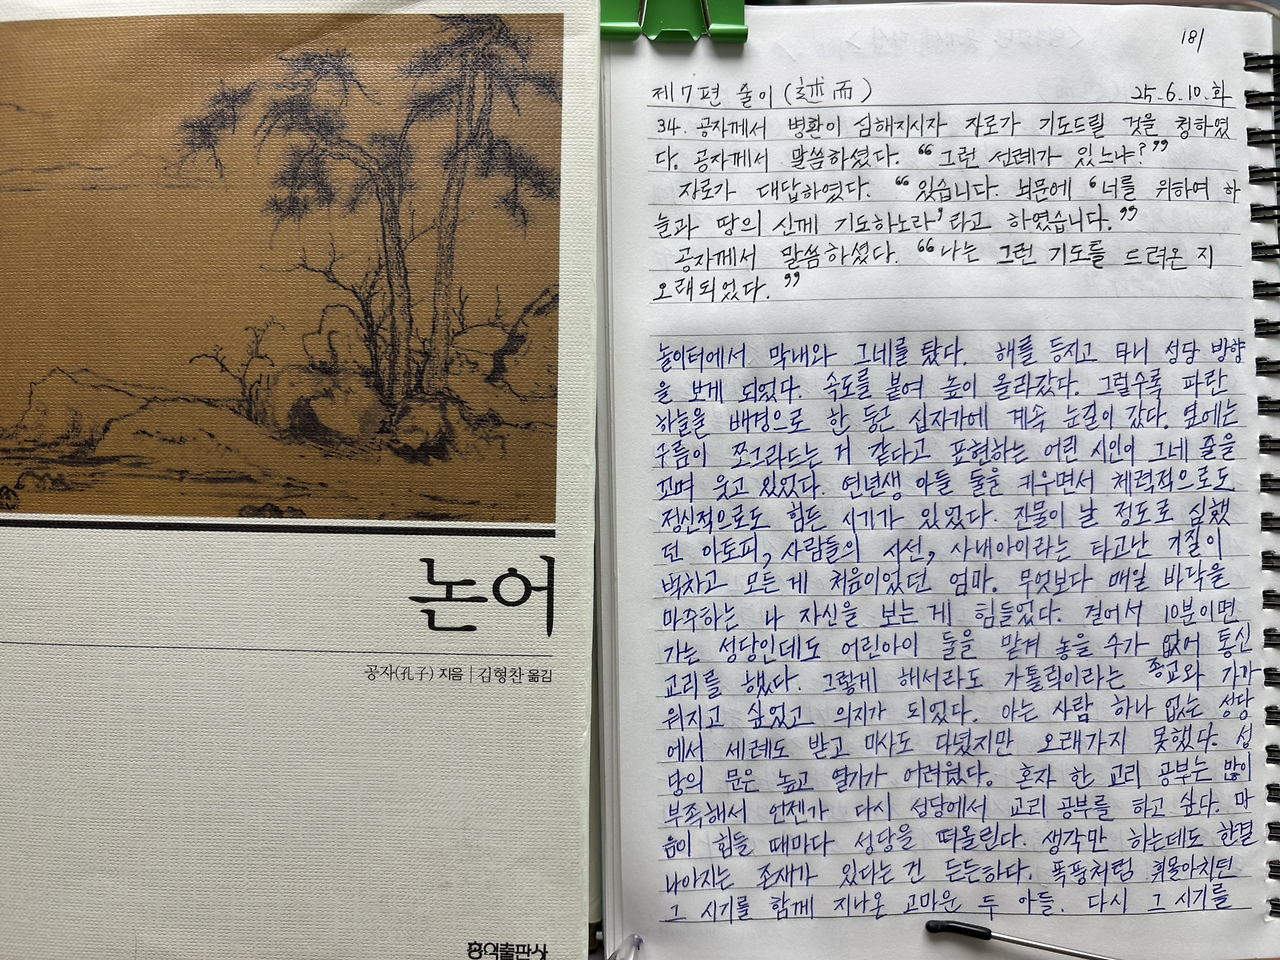 논어
공자(孔子) 지음 | 김형찬 옮김
홍익출판사
181
제7편 술이(述而) 25.6.10.화
34. 공자께서 병환이 심해지시자 자로가 기도드릴 것을 청하였
다. 공자께서 말씀하셨다. “그런 선례가 있느냐?”
자로가 대답하였다. “있습니다. 뇌문에 ‘너를 위하여 하
늘과 땅의 신께 기도하노라’라고 하였습니다.”
공자께서 말씀하셨다. “나는 그런 기도를 드려온 지
오래되었다.”
놀이터에서 막내와 그네를 탔다. 해를 등지고 타니 성당 방향
을 보게 되었다. 속도를 붙여 높이 올라갔다. 그럴수록 파란
하늘을 배경으로 한 둥근 십자가에 계속 눈길이 갔다. 옆에는
구름이 쪼그라드는 거 같다고 표현하는 어린 시인이 그네 줄을
꼬며 웃고 있었다. 연년생 아들 둘을 키우면서 체력적으로도
정신적으로도 힘든 시기가 있었다. 진물이 날 정도로 심했
던 아토피, 사람들의 시선, 사내아이라는 타고난 기질이
벅차고 모든 게 처음이었던 엄마. 무엇보다 매일 바닥을
마주하는 나 자신을 보는 게 힘들었다. 걸어서 10분이면
가는 성당인데도 어린아이 둘을 맡겨 놓을 수가 없어 통신
교리를 했다. 그렇게 해서라도 가톨릭이라는 종교와 가까
워지고 싶었고 의지가 되었다. 아는 사람 하나 없는 성당
에서 세례도 받고 미사도 다녔지만 오래가지 못했다. 성
당의 문은 높고 열기가 어려웠다. 혼자 한 교리 공부는 많이
부족해서 언젠가 다시 성당에서 교리 공부를 하고 싶다. 마
음이 힘들 때마다 성당을 떠올린다. 생각만 하는데도 한결
나아지는 존재가 있다는 건 든든하다. 폭풍처럼 휘몰아치던
그 시기를 함께 지나온 고마운 두 아들. 다시 그 시기를